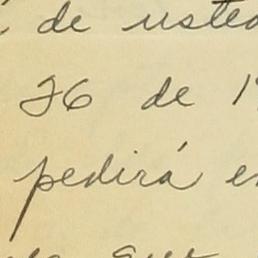 de usted
26 de 1
pedirá e
que